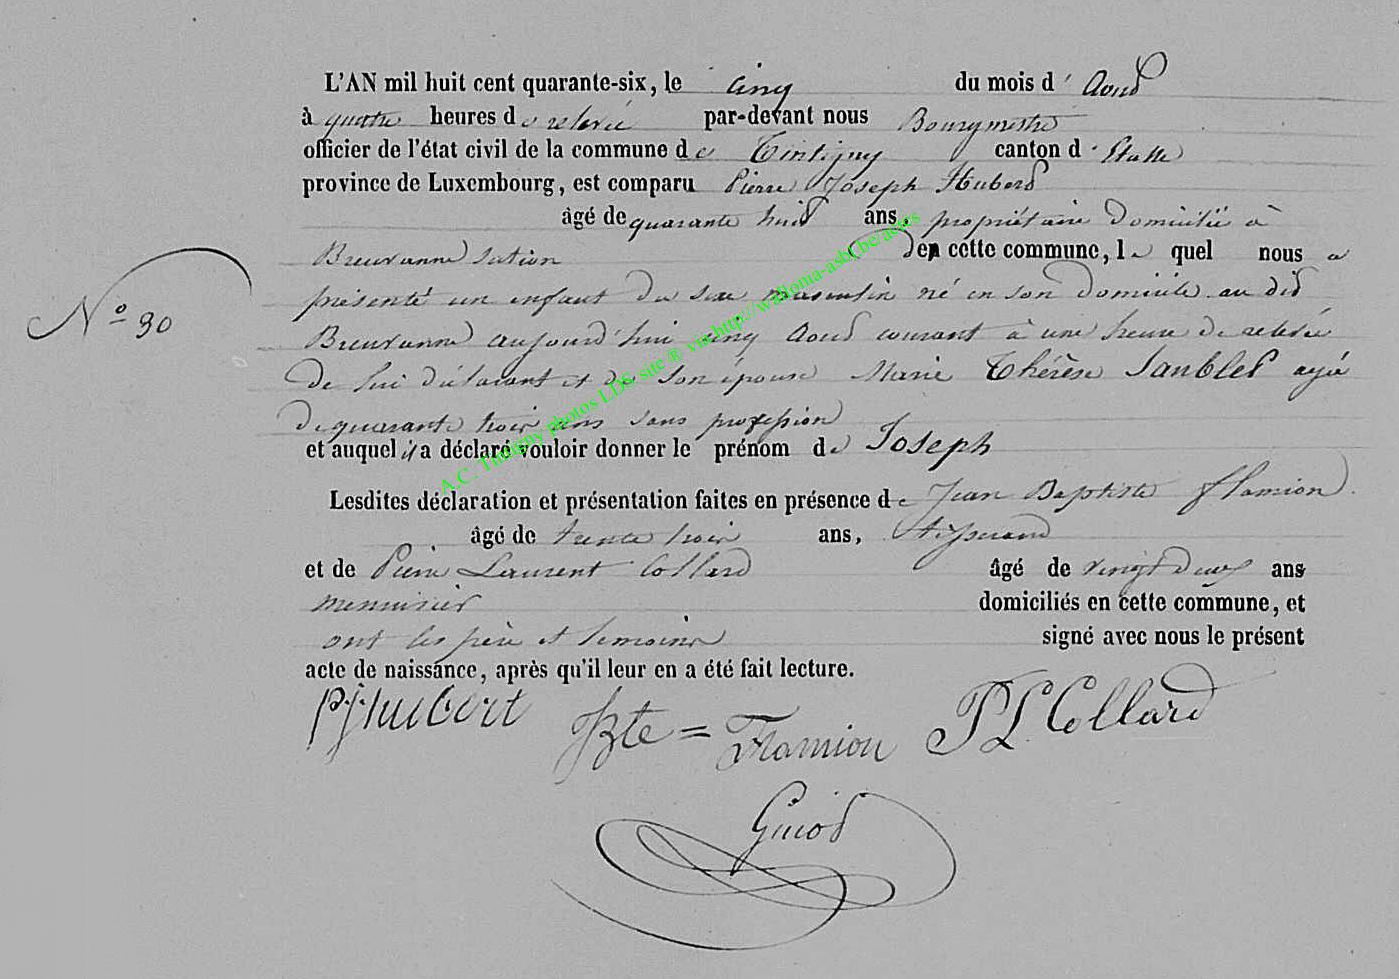 L'AN mil huit cent quarante-six, le cinq du mois d' Aout
à quatre heures de relevée par-devant nous Bourgmestre
officier de l'état civil de la commune de Tintigny canton d'Etalle
province de Luxembourg, est comparu Pierre Joseph Hubert
âgé de quarante huit ans, propriétaire domicilié à
Breuvanne section den cette commune, le quel nous a
présenté un enfant du sexe masculin né en son domicile au dit
Breuvanne aujourd'hui cinq Aout courant à une heure de relevée
de lui déclarant et de son épouse Marie Thérèse Jamblet agée
de quarante trois ans sans profession
et auquel il a déclaré vouloir donner le prénom de Joseph
Lesdites déclaration et présentation faites en présence de Jean Baptiste flamion
âgé de trente trois ans, tisserand
et de Pierre Laurent Collard âgé de vingt deux ans
menuisier domiciliés en cette commune, et
ont les père et temoins signé avec nous le présent
acte de naissance, après qu'il leur en a été fait lecture.
N° 30
PJHubert JBte = Flamion PL Collard
Guiot
A.C. Tintigny photos LDS site ® via http://wallonia-asbl.be/actes